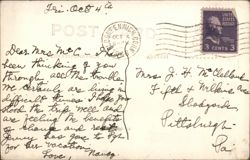 Fri. Oct 4
POST CARD
Dear Mrs Mc C. - I've
been thinking of you
through all the trouble
We certainly are living in
difficult times. Hope you
the trip well and
are feeling the benefits
of change and rest
has gone to
for her vacation.
Love, Nancy
3 CENTS 3
Mrs. J. H. McClelland
Fifth & Wilkins Ave
Shadyside
Pittsburgh
Pa